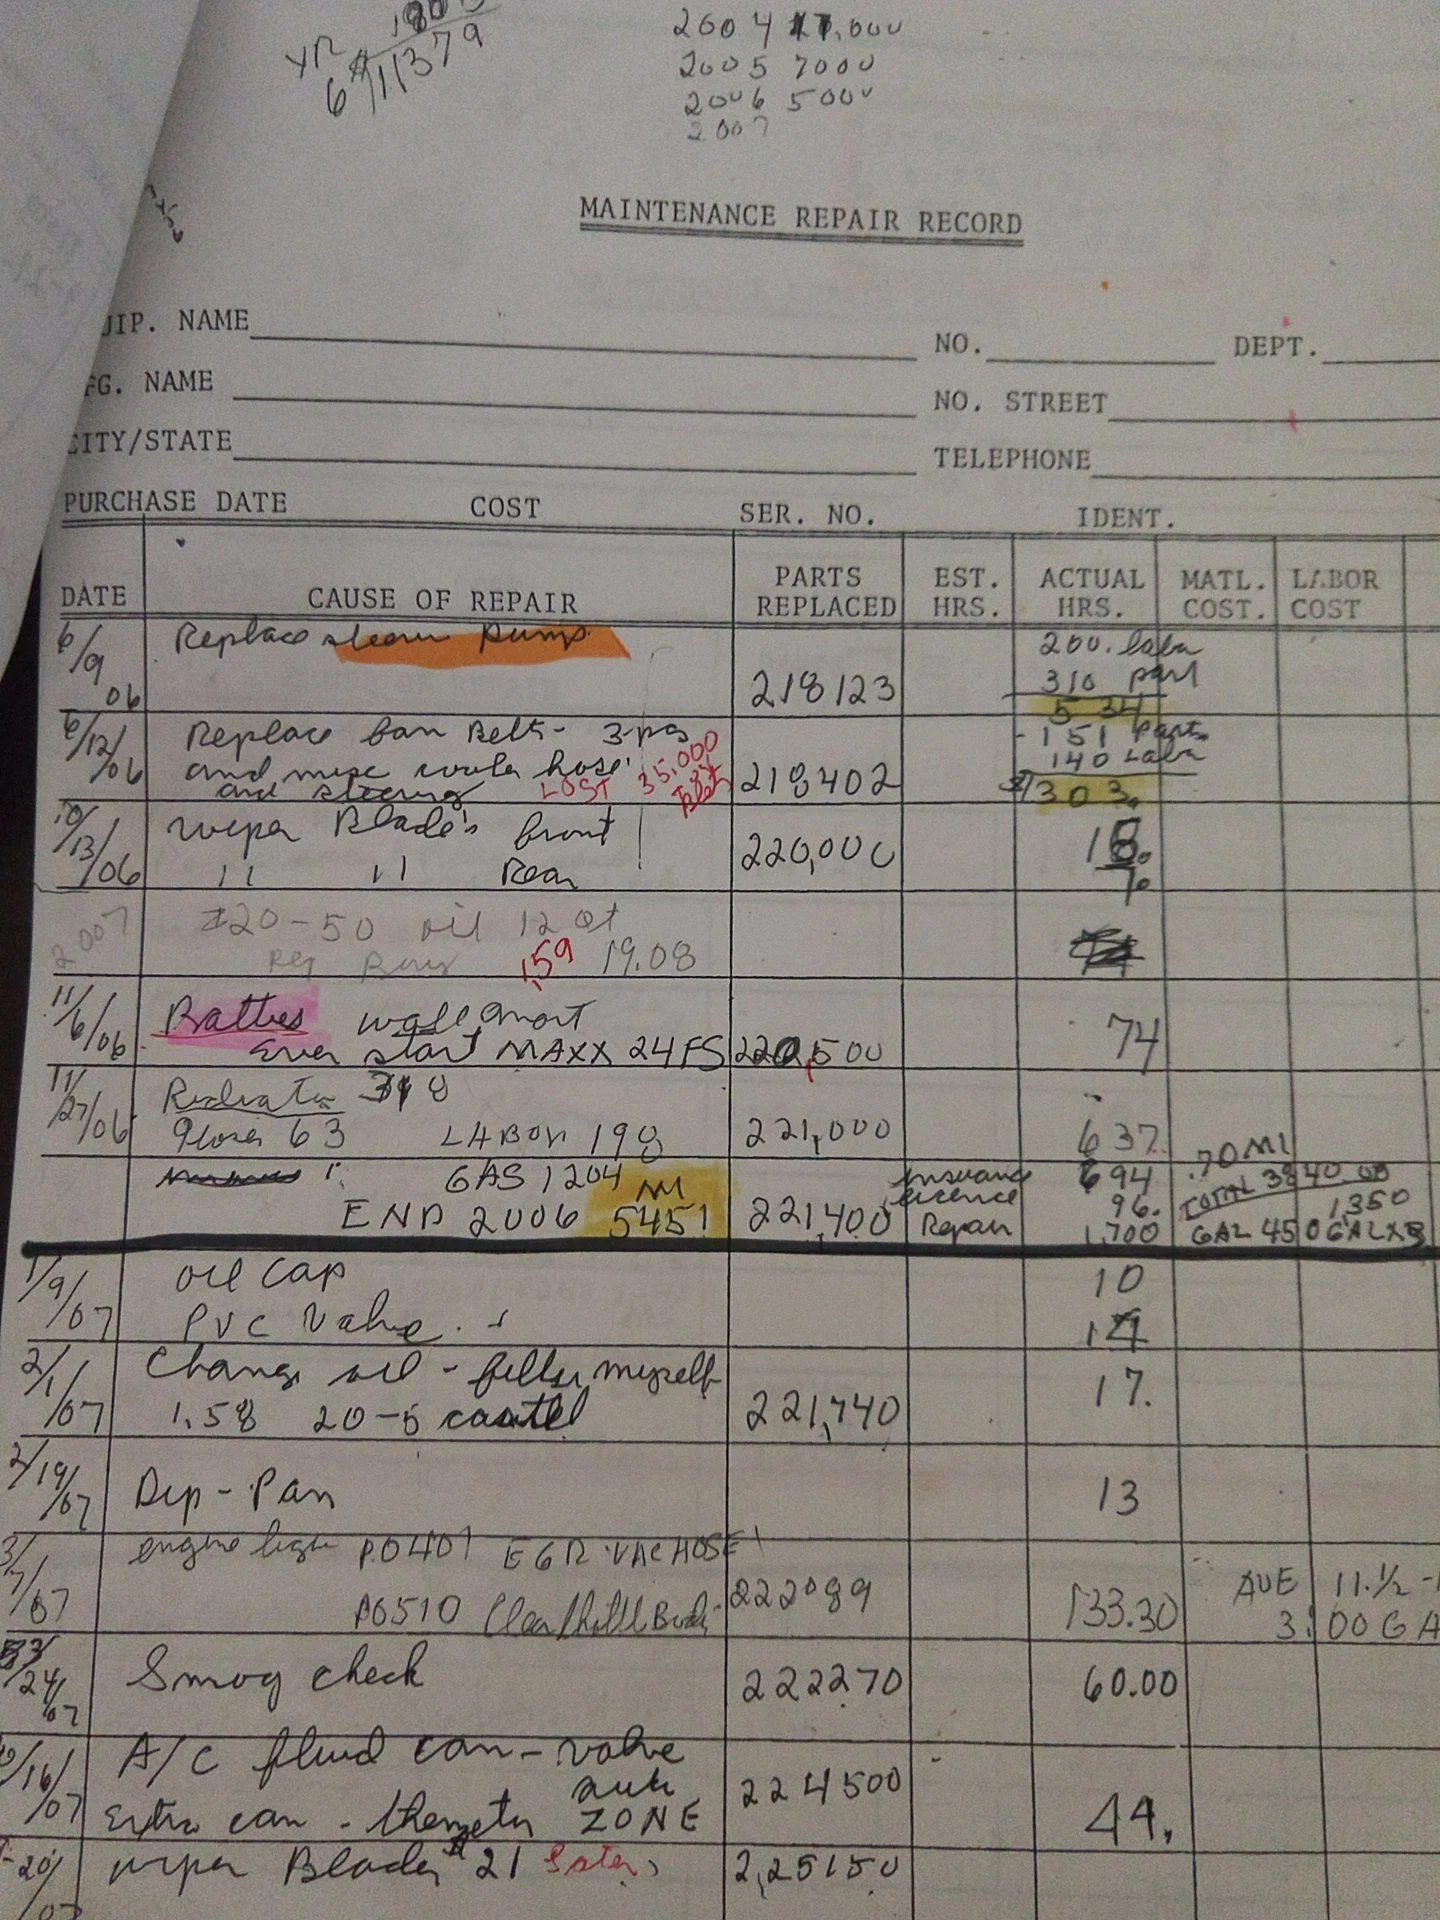 1800
YR
6 11379
2004 17,000
2005 7000
2006 5000
2007
MAINTENANCE REPAIR RECORD
UIP. NAME NO. DEPT.
FG. NAME NO. STREET
CITY/STATE TELEPHONE
PURCHASE DATE COST SER. NO. IDENT.
DATE CAUSE OF REPAIR PARTS REPLACED EST. HRS. ACTUAL HRS. MATL. COST. LABOR COST
6/9/06 Replace steam pump 218123 200. labn
310 part
534
6/12/06 Replace fan Belts - 3-ps 151 parts
and misc water hose 218402 140 Labn
and steering LOST 35,000 303.
10/13/06 wiper Blade's front 220,000 18.
11 11 Rear 7.
2007 20-50 oil 12 qt
Reg 1.59 19.08
11/6/06 Battres wall mart 74
Ever start MAXX 24FS 220,500
11/27/06 Radiator 318
63 LABOR 198 221,000 637.
GAS 1204 Insurance 694 .70 MI
MI licence 96. TOTAL 3840.00
END 2006 5451 221,400 Repair 1,700 1,350
GAL 450 GAL X 3
1/9/07 oil cap 10
PVC Valve. 14
2/1/07 Change oil - filter myself 17.
1.58 20-5 castel 221,740
2/19/07 Dip - Pan 13
3/7/07 engine ligh P0401 EGR VAC HOSE
P0510 Clean Throttl Body 222089 133.30 AVE 11.1/2 -
3.00 GA
3/24/07 Smog check 222270 60.00
/16/07 A/C fluid can - valve 224500
auto
Extra can - ZONE 44.
20/07 wiper Blades 21 225150